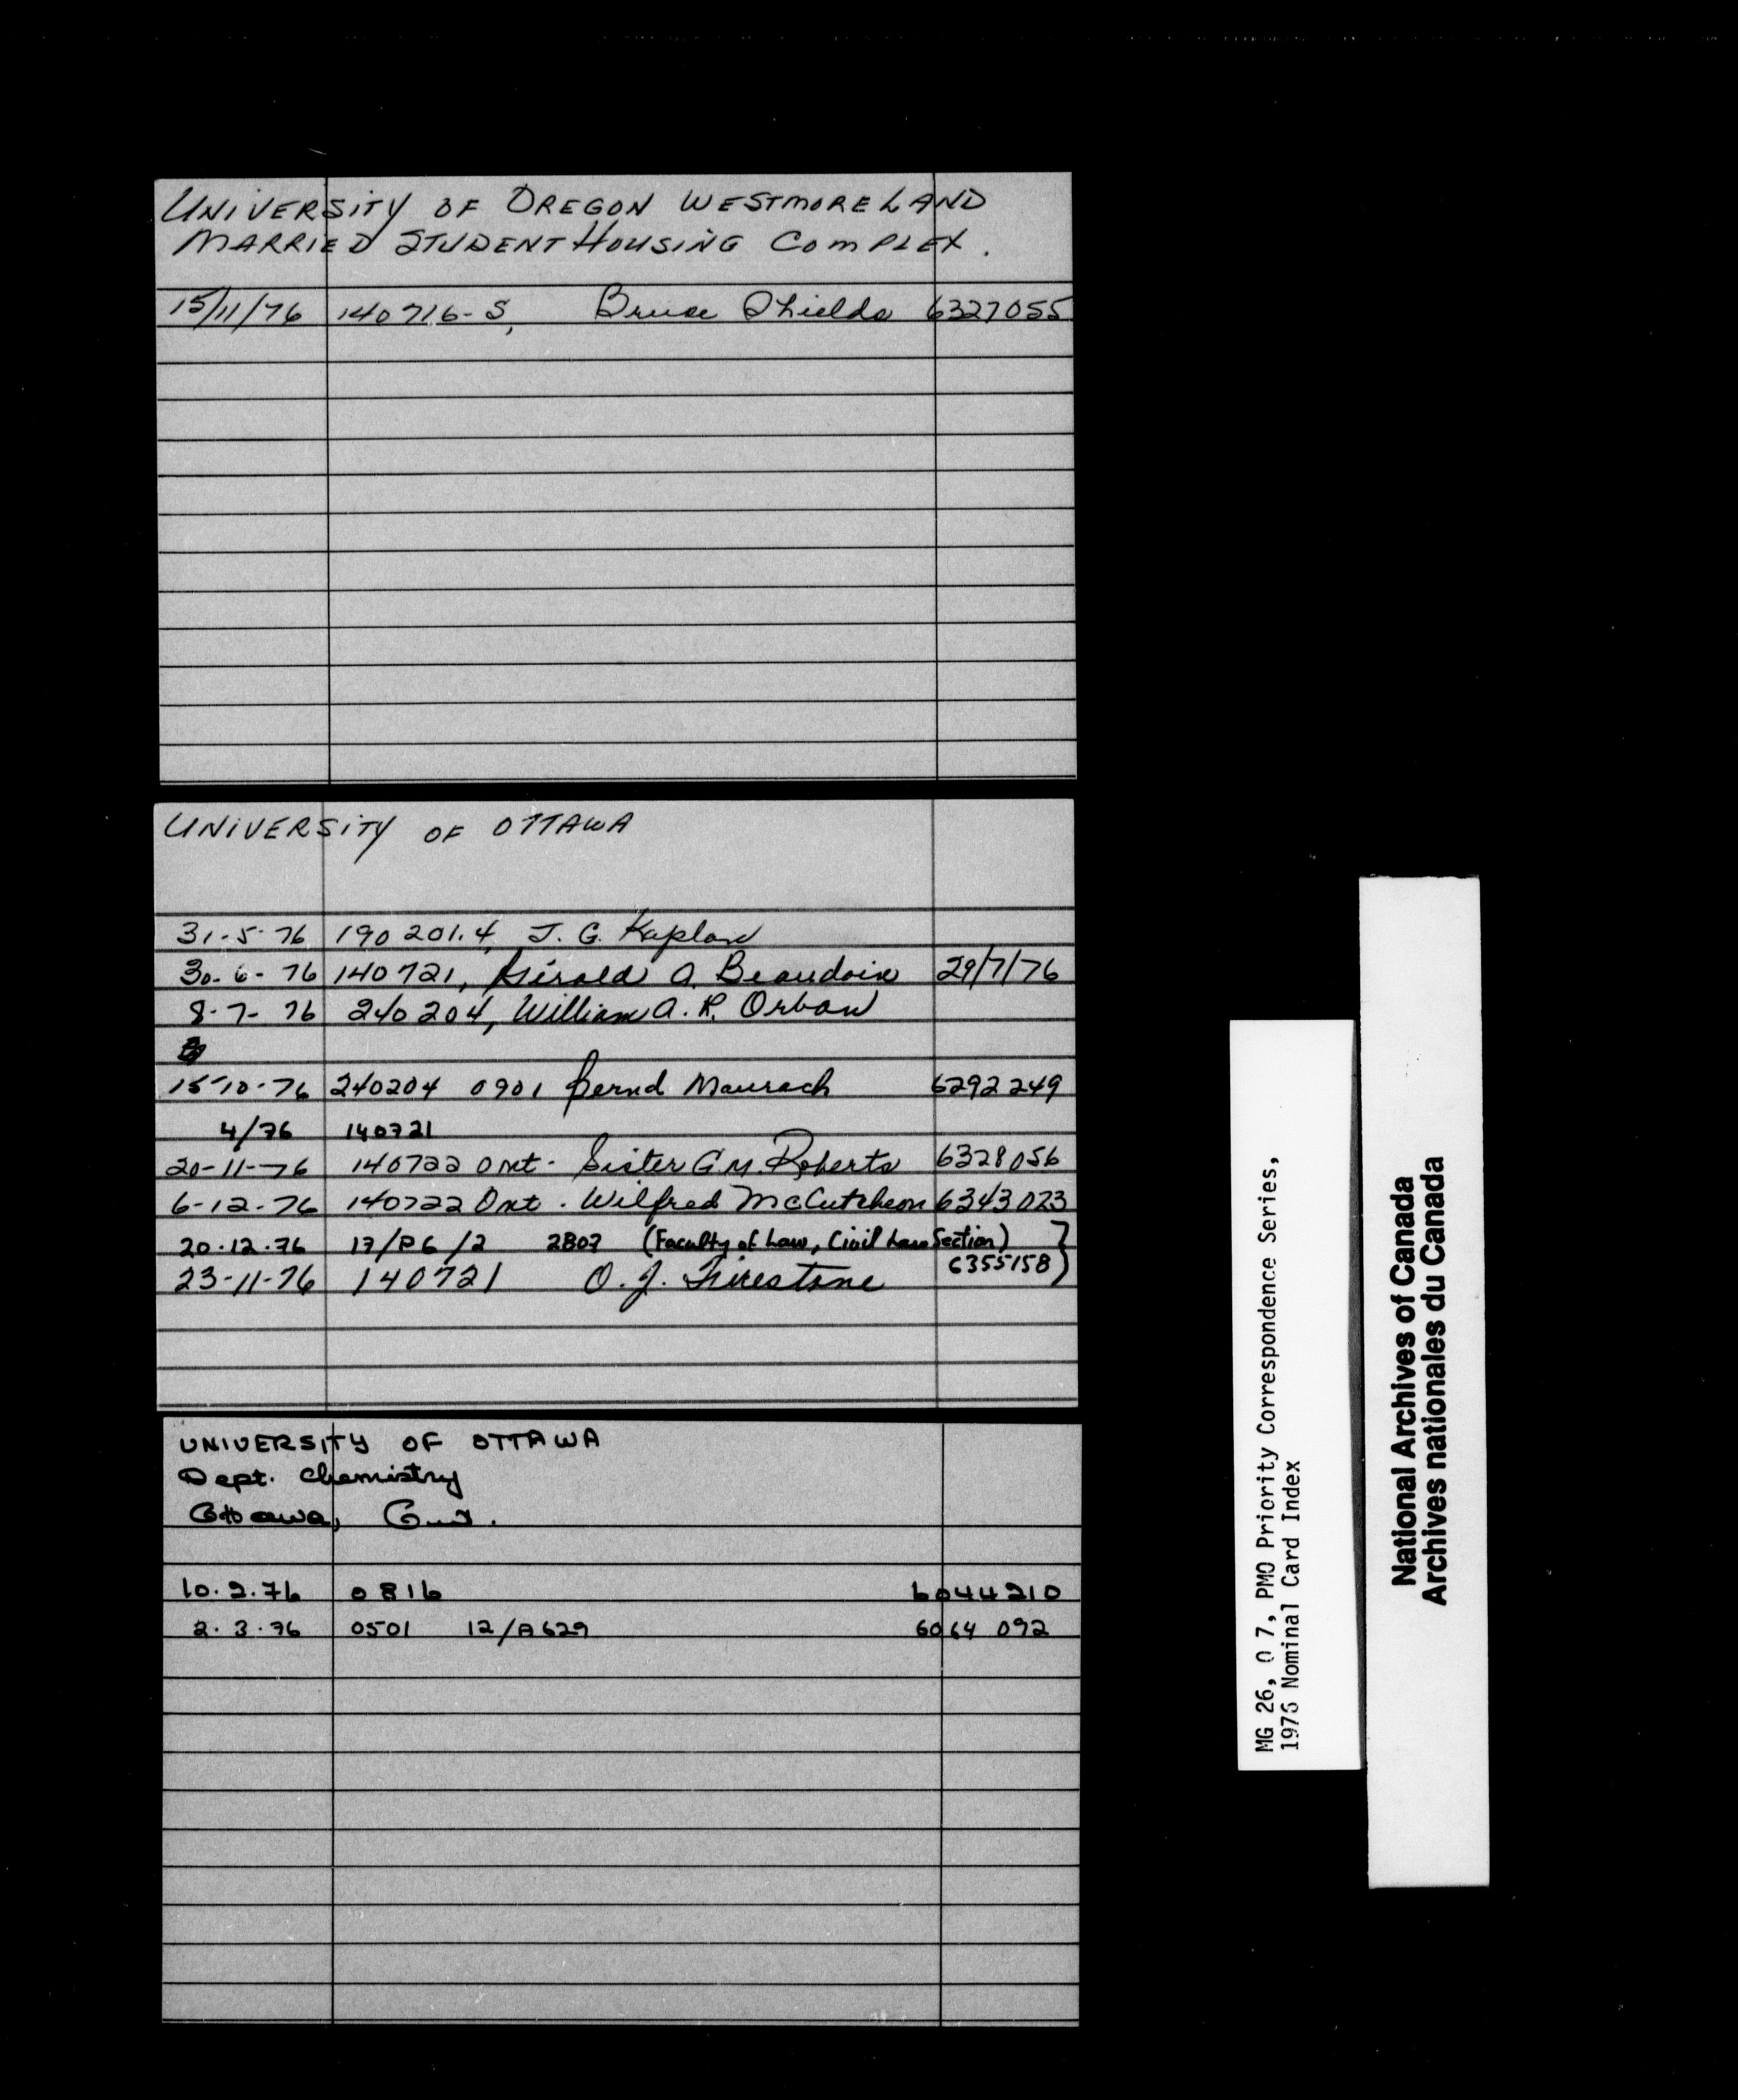 UNIVERSITY OF OREGON WESTMORELAND
MARRIED STUDENT HOUSING COMPLEX.
15/11/76 140716-S, Bruce Shields 6327055
UNIVERSITY OF OTTAWA
31-5-76 190201.4, J. G. Kaplan
30-6-76 140721, Gérald A. Beaudoin 29/7/76
8-7-76 240204, William A. R. Orban
15-10-76 240204 0901 Bernd Maurach 6292249
4/76 140721
20-11-76 140722 Ont. Sister G.M. Roberts 6328056
6-12-76 140722 Ont. Wilfred McCutcheon 6343023
20.12.76 17/P6/2 2807 (Faculty of Law, Civil Law Section) }
23-11-76 140721 O. J. Firestone 6355158
UNIVERSITY OF OTTAWA
Dept. Chemistry
Ottawa, Ont.
10.2.76 0816 6044210
2.3.76 0501 12/A629 6064 092
MG 26, O 7, PMO Priority Correspondence Series,
1976 Nominal Card Index
National Archives of Canada
Archives nationales du Canada